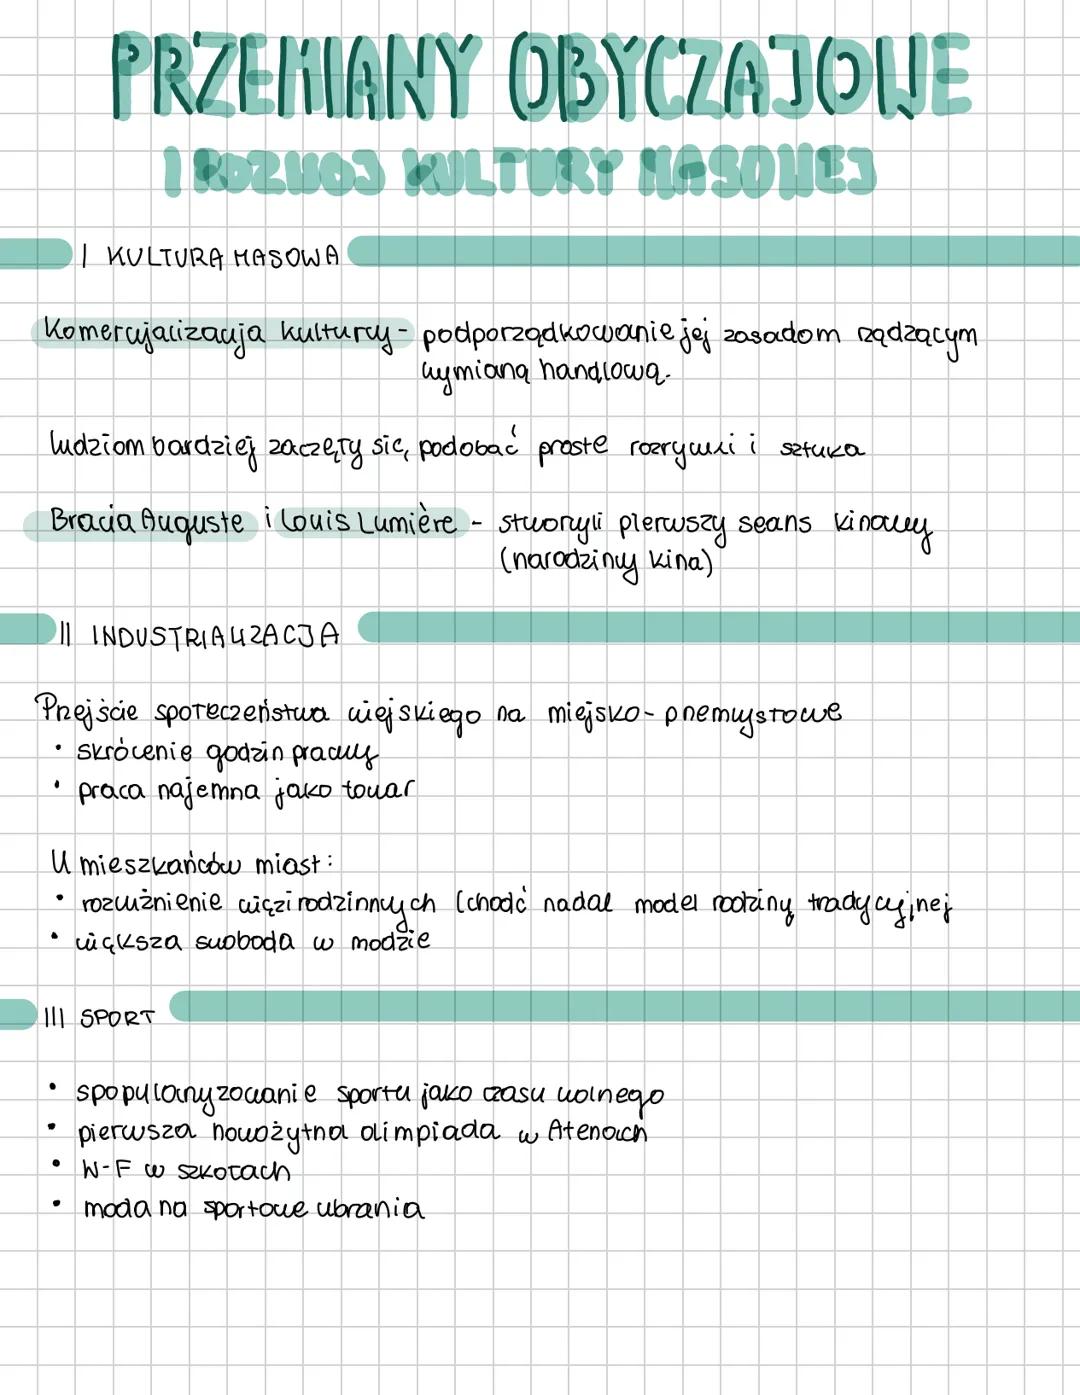 PRZEMIANY OBYCZAJOWE
I ROZWÓJ KULTURY MASOWEJ
I KULTURA MASOWA
Komercjacizacja kultury - podporządkowanie jej zasadom rządzącym
wymianą handlową.
ludziom bardziej zaczęły się podobać proste rozrywki i sztuka
Bracia Auguste i Louis Lumière - stworzyli pierwszy seans kinowy
(narodziny kina)
II INDUSTRIALIZACJA
Przejście społeczeństwa wiejskiego na miejsko-przemysłowe
• skrócenie godzin pracy
• praca najemna jako towar
U mieszkańców miast:
• rozluźnienie więzi rodzinnych (chodć nadal model rodziny tradycyjnej
• większa swoboda w modzie
III SPORT
• spopularyzowanie sportu jako czasu wolnego
• pierwsza nowożytna olimpiada w Atenach
• W-F w szkołach
• moda na sportowe ubrania